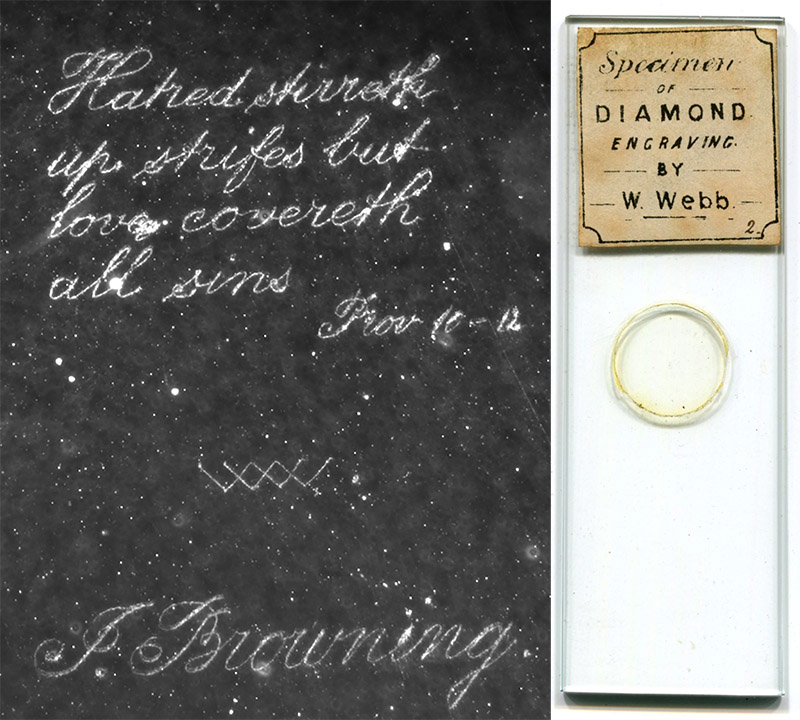 Hatred stirreth
up strifes but
love covereth
all sins
Prov 10-12
J Browning
Specimen
OF
DIAMOND
ENGRAVING.
BY
W. Webb.
2.